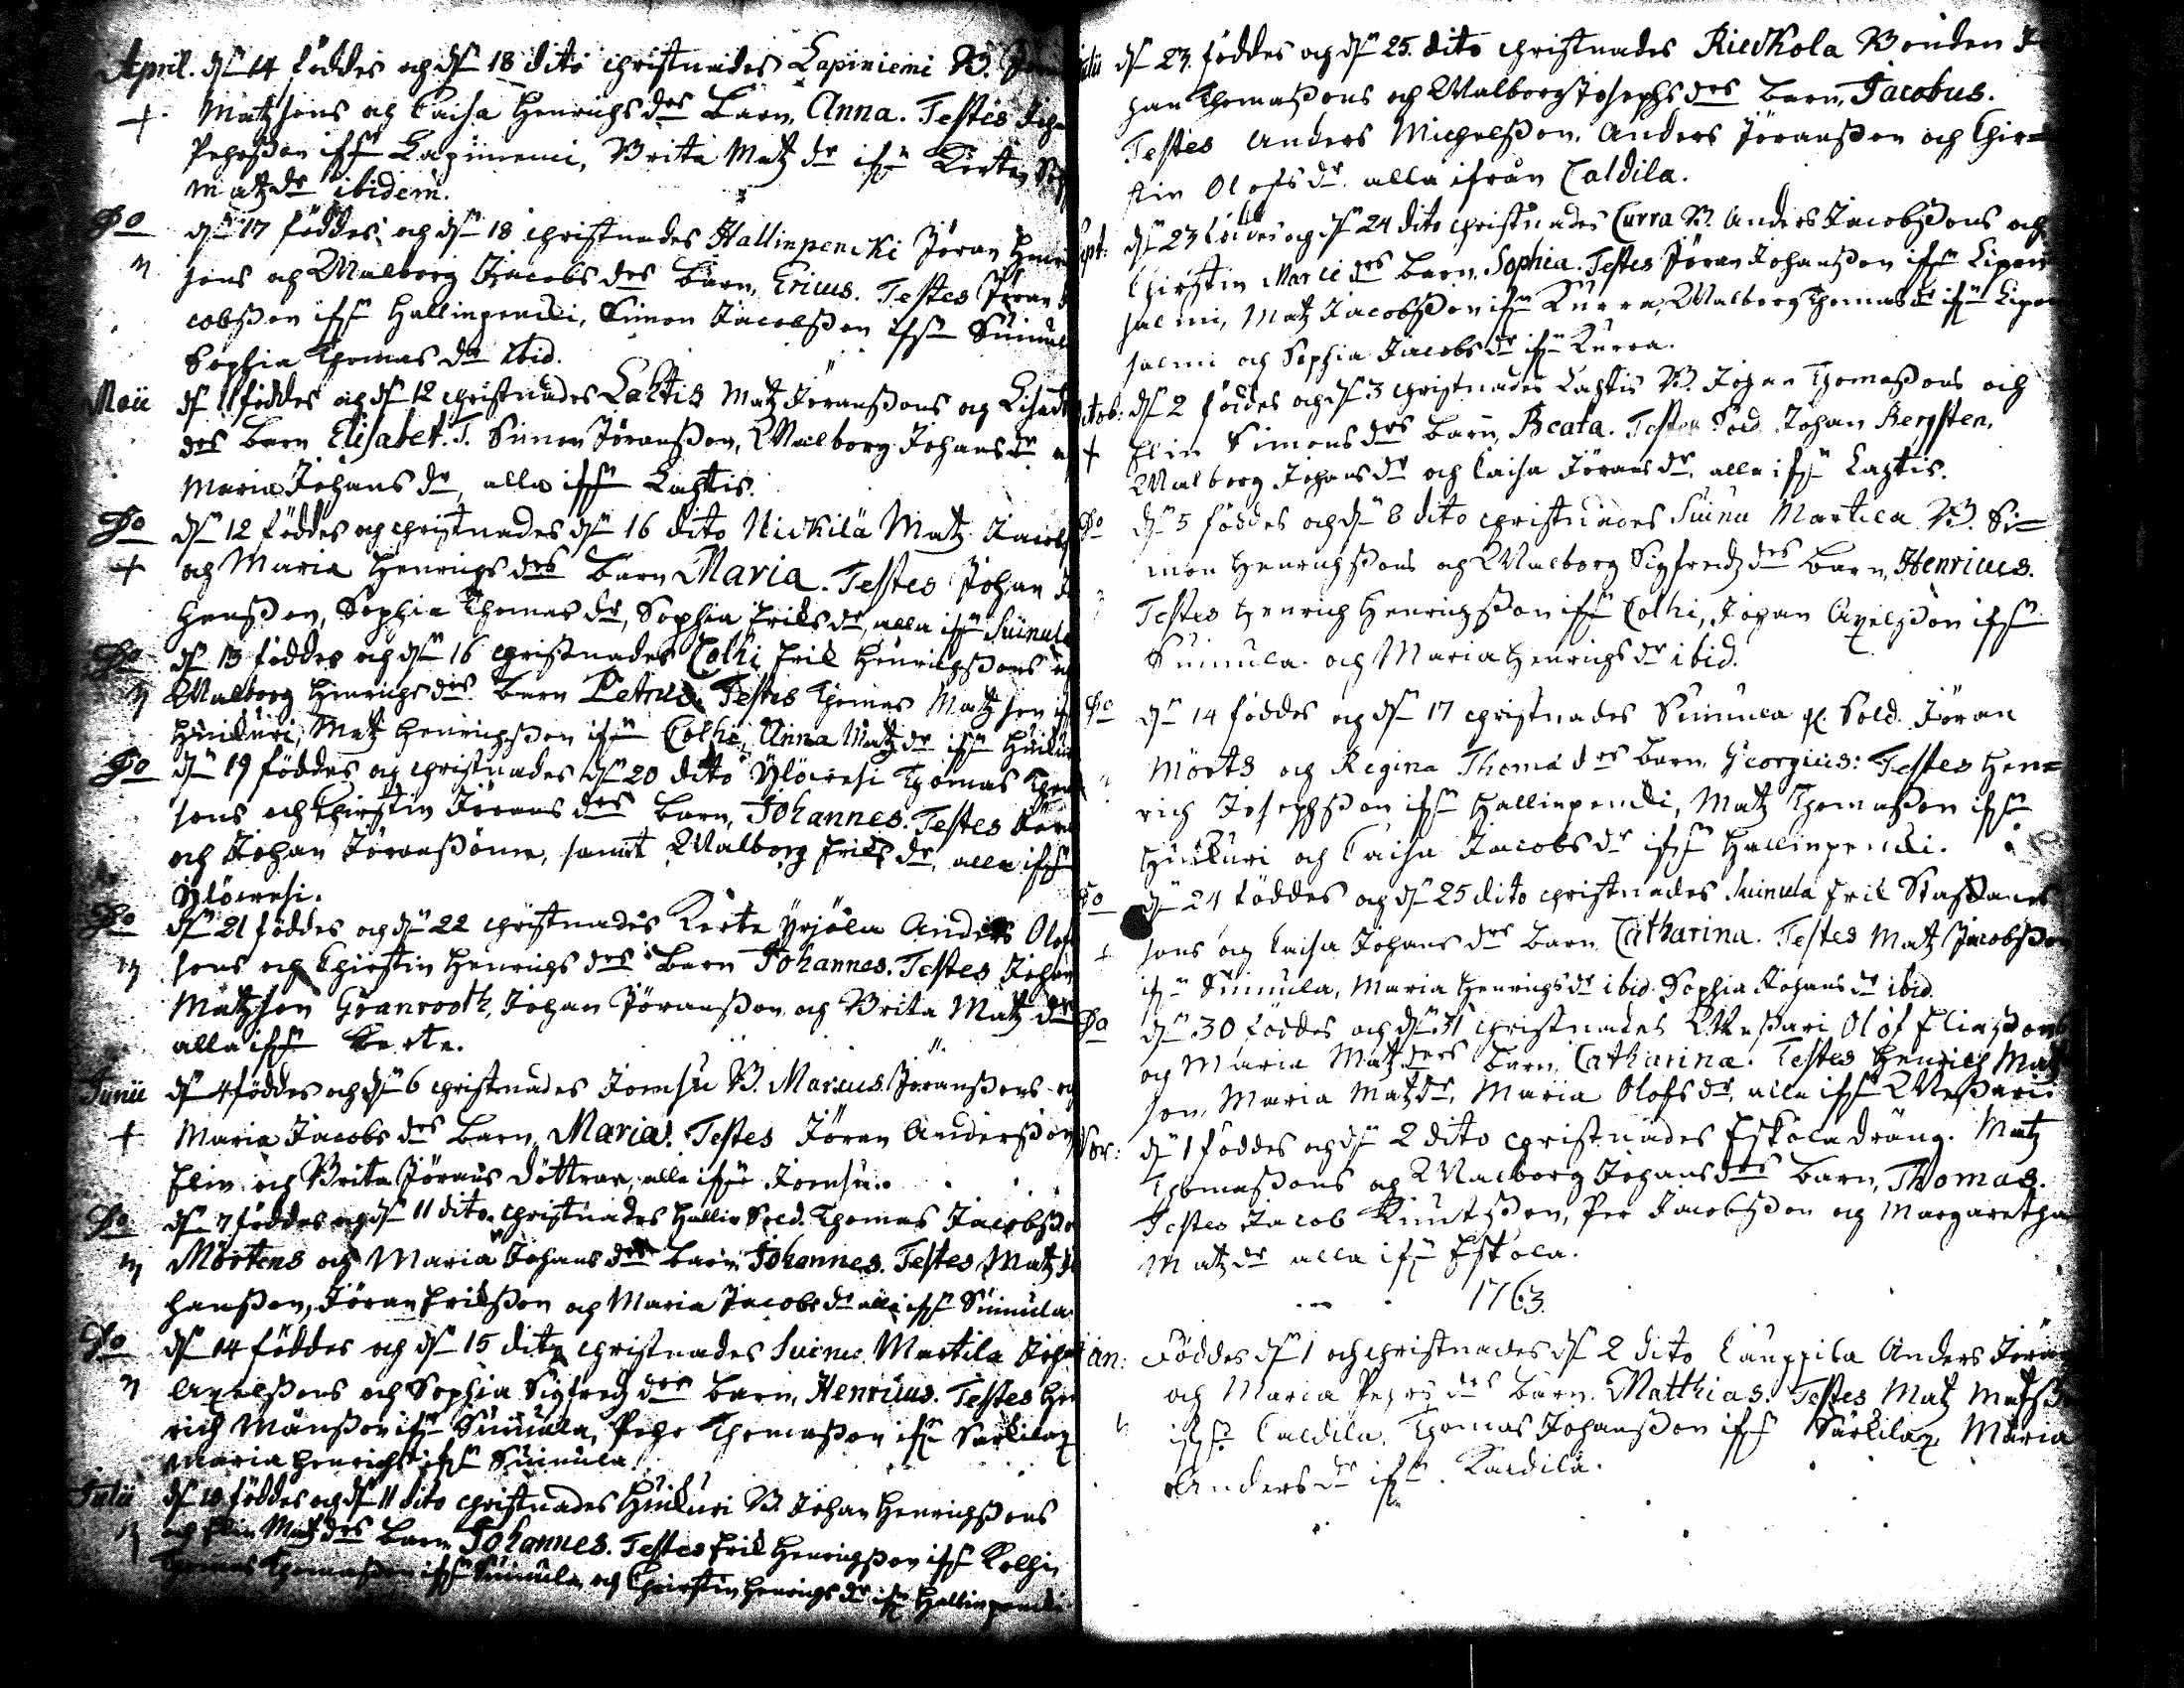 April. d. 14 föddes och d. 18 dito christnades Lapiniemi B.
+ Matzsons och Caisa Henrichs drs Barn, Anna. Testes
Pehrsson ifrån Lapiniemi, Brita Matz dr ifrån Kerte,
Matz dr ibidem.
Do d. 17 föddes och d. 18 christnades Hallinpencki Jöran Henri
n sons och Walborg Jacobs drs Barn, Ericus. Testes Jöran
cobsson ifrån Hallinpendi, Simon Jacobsson ifrån Suinul
Sophia Thomas dr ibid.
Maii d. 11 föddes och d. 12 christnades Lahtis Matz Jöranssons och Lisa
drs Barn Elisabet. T. Simon Jöransson, Walborg Johans dr
Maria Johans dr, alla ifrån Lahtis.
Do d. 12 föddes och christnades d. 16 dito Nickilä Matz Jacobs
+ och Maria Henrichs drs Barn Maria. Testes Johan
hansson, Sophia Thomas dr, Sophia Eriks dr, alla ifrån Suinula
Do d. 13 föddes och d. 16 christnades Colhi Erik Henrichssons
n Walborg Henrichs drs Barn Petrus. Testes Thomas Matzson
Huikuri, Matz Henrichsson ifrån Colhi, Anna Matz dr ifrån Huiku
Do d. 19 föddes och christnades d. 20 dito Ylöinesi Thomas Thom
sons och Chirstin Jörans drs Barn, Johannes. Testes Jör
och Johan Jöranssöner, samt Walborg Eriks dr, alla ifrån
Ylöinesi.
Do d. 21 föddes och d. 22 christnades Kerte Yrjölä Anders Olof
n sons och Chirstin Henrichs drs Barn Johannes. Testes Johan
Matzson Granrooth, Johan Jöransson och Brita Matz dr
alla ifrån Kerte.
Junii d. 4 föddes och d. 6 christnades Joensu B. Marcus Jöranssons och
+ Maria Jacobs drs Barn, Maria. Testes Jöran Andersson
Elin och Brita Jörans döttrar, alla ifrån Joensu.
Do d. 7 föddes och d. 11 dito christnades Hallin Sold. Thomas Jacobsso
n Mörtens och Maria Johans drs Barn Johannes. Testes Matz Jo
hansson, Jöran Eriksson och Maria Jacobs dr alla ifrån Suinula
Do d. 14 föddes och d. 15 dito christnades Suinu Martila Joha
n Axelssons och Sophia Sigfredz drs Barn, Henricus. Testes Hen
rich Månsson ifrån Suinula, Pehr Thomasson ifrån Särkilax
Maria Henrichs ifrån Suinula.
Julii d. 10 föddes och d. 11 dito christnades Huikuri B. Johan Henrichssons
n och Elin Matz drs Barn Johannes. Testes Erik Henrichsson ifrån Kolhi,
Thomas Thomasson ifrån Suinula och Chirstin Henrichs dr ifrån Hallinpendi
Julii d. 23 föddes och d. 25. dito christnades Riedkola Bonden J
han Thomassons och Walborg Josephs drs Barn, Jacobus.
Testes Anders Michelsson, Anders Jöransson och Chir=
stin Olofs dr. alla ifrån Caldila.
Sept: d. 23 föddes och d. 24 dito christnades Curra B. Anders Jacobssons och
Chirstin Marci drs Barn, Sophia. Testes Jöran Johansson ifrån Lipon
salmi, Matz Jacobsson ifrån Kurra, Walborg Thomas dr ifrån Lipo
salmi och Sophia Jacobs dr ifrån Kurra.
Octob: d. 2 föddes och d. 3 christnades Lahtis B. Johan Thomassons och
+ Elin Simons drs Barn, Beata. Testes Sold. Johan Bergsten,
Walborg Johans dr och Caisa Jörans dr. alla ifrån Lahtis.
Do d. 5 föddes och d. 8 dito christnades Suinu Martila B. Si=
mon Henrichssons och Walborg Sigfredz drs Barn, Henricus.
Testes Henrich Henrichsson ifrån Colhi, Johan Axelsson ifrån
Suinula. och Maria Henrichs dr ibid.
Do d. 14 föddes och d. 17 christnades Suinula Sold. Jöran
Mörts och Regina Thomæ drs Barn, Georgius: Testes Hen=
rich Josephsson ifrån Hallinpendi, Matz Thomasson ifrån
Huikuri och Caisa Jacobs dr ifrån Hallinpendi.
Do d. 24 föddes och d. 25 dito christnades Suinula Erik Staffans
+ sons och Caisa Johans drs Barn Catharina. Testes Matz Jacobsson
ifrån Suinula, Maria Henrichs dr ibid. Sophia Johans dr ibid.
Do d. 30 föddes och d. 31 christnades Wessari Olof Eliassons
och Maria Matz drs Barn, Catharina. Testes Henrich Matz
son, Maria Matz dr, Maria Olofs dr, alla ifrån Wessari.
Nov: d. 1 föddes och d. 2 dito christnades Eskola dräng. Matz
Thomassons och Walborg Johans drs Barn, Thomas.
Testes Jacob Knutsson, Per Jacobsson och Margaretha
Matz dr alla ifrån Eskola.
1763.
Jan: Föddes d. 1 och christnades d. 2 dito Cauppila Anders Jöran
och Maria Pehrs drs Barn. Matthias. Testes Matz Matss
ifrån Caldila, Thomas Johansson ifrån Särkilax, Maria
Anders dr ifrån Kaldila.